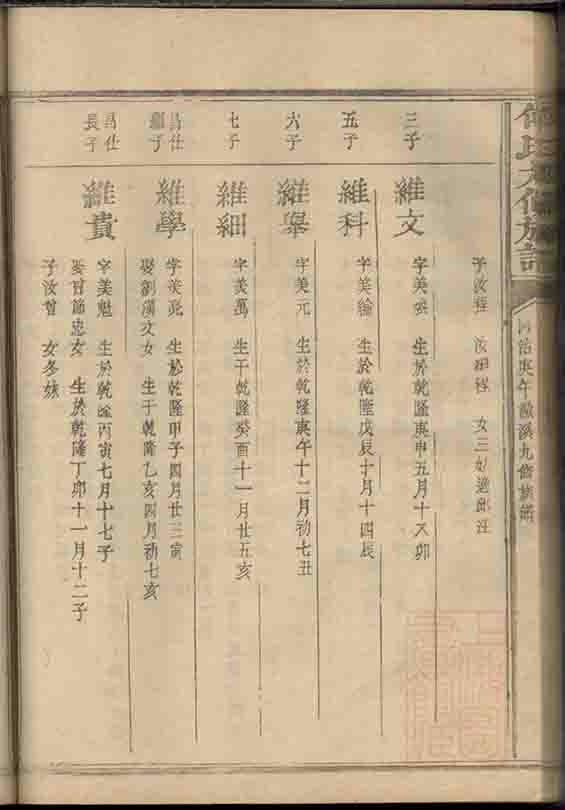 氏大修族譜
同治庚午 溪九修族譜
子汝程 汝 程 女三 適郎汪
三子
維文
字美 生於乾隆庚申五月十又卯
五子
維科
字美 生於乾隆戊辰十月十四辰
六子
維舉
字美元 生於乾隆庚午十二月初七丑
七子
維細
字美萬 生于乾隆癸酉十一月廿五亥
昌仕 子
維學
字美 生於乾隆甲子四月廿三寅
娶劉漢文女 生于乾隆乙亥四月初七亥
昌仕長子
維貴
字美魁 生於乾隆丙寅七月十七子
娶 節忠女 生於乾隆丁卯十一月十二子
子汝曾 女冬妹